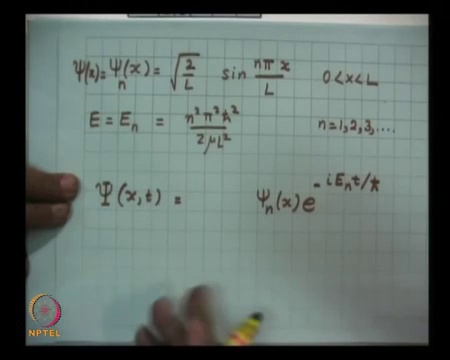 Ψ(x) = Ψn(x) = √(2/L) sin nπx/L 0<x<L
E = En = n²π²ħ²/2μL² n=1,2,3,....
Ψ(x,t) = Ψn(x) e^-iEnt/ħ
NPTEL